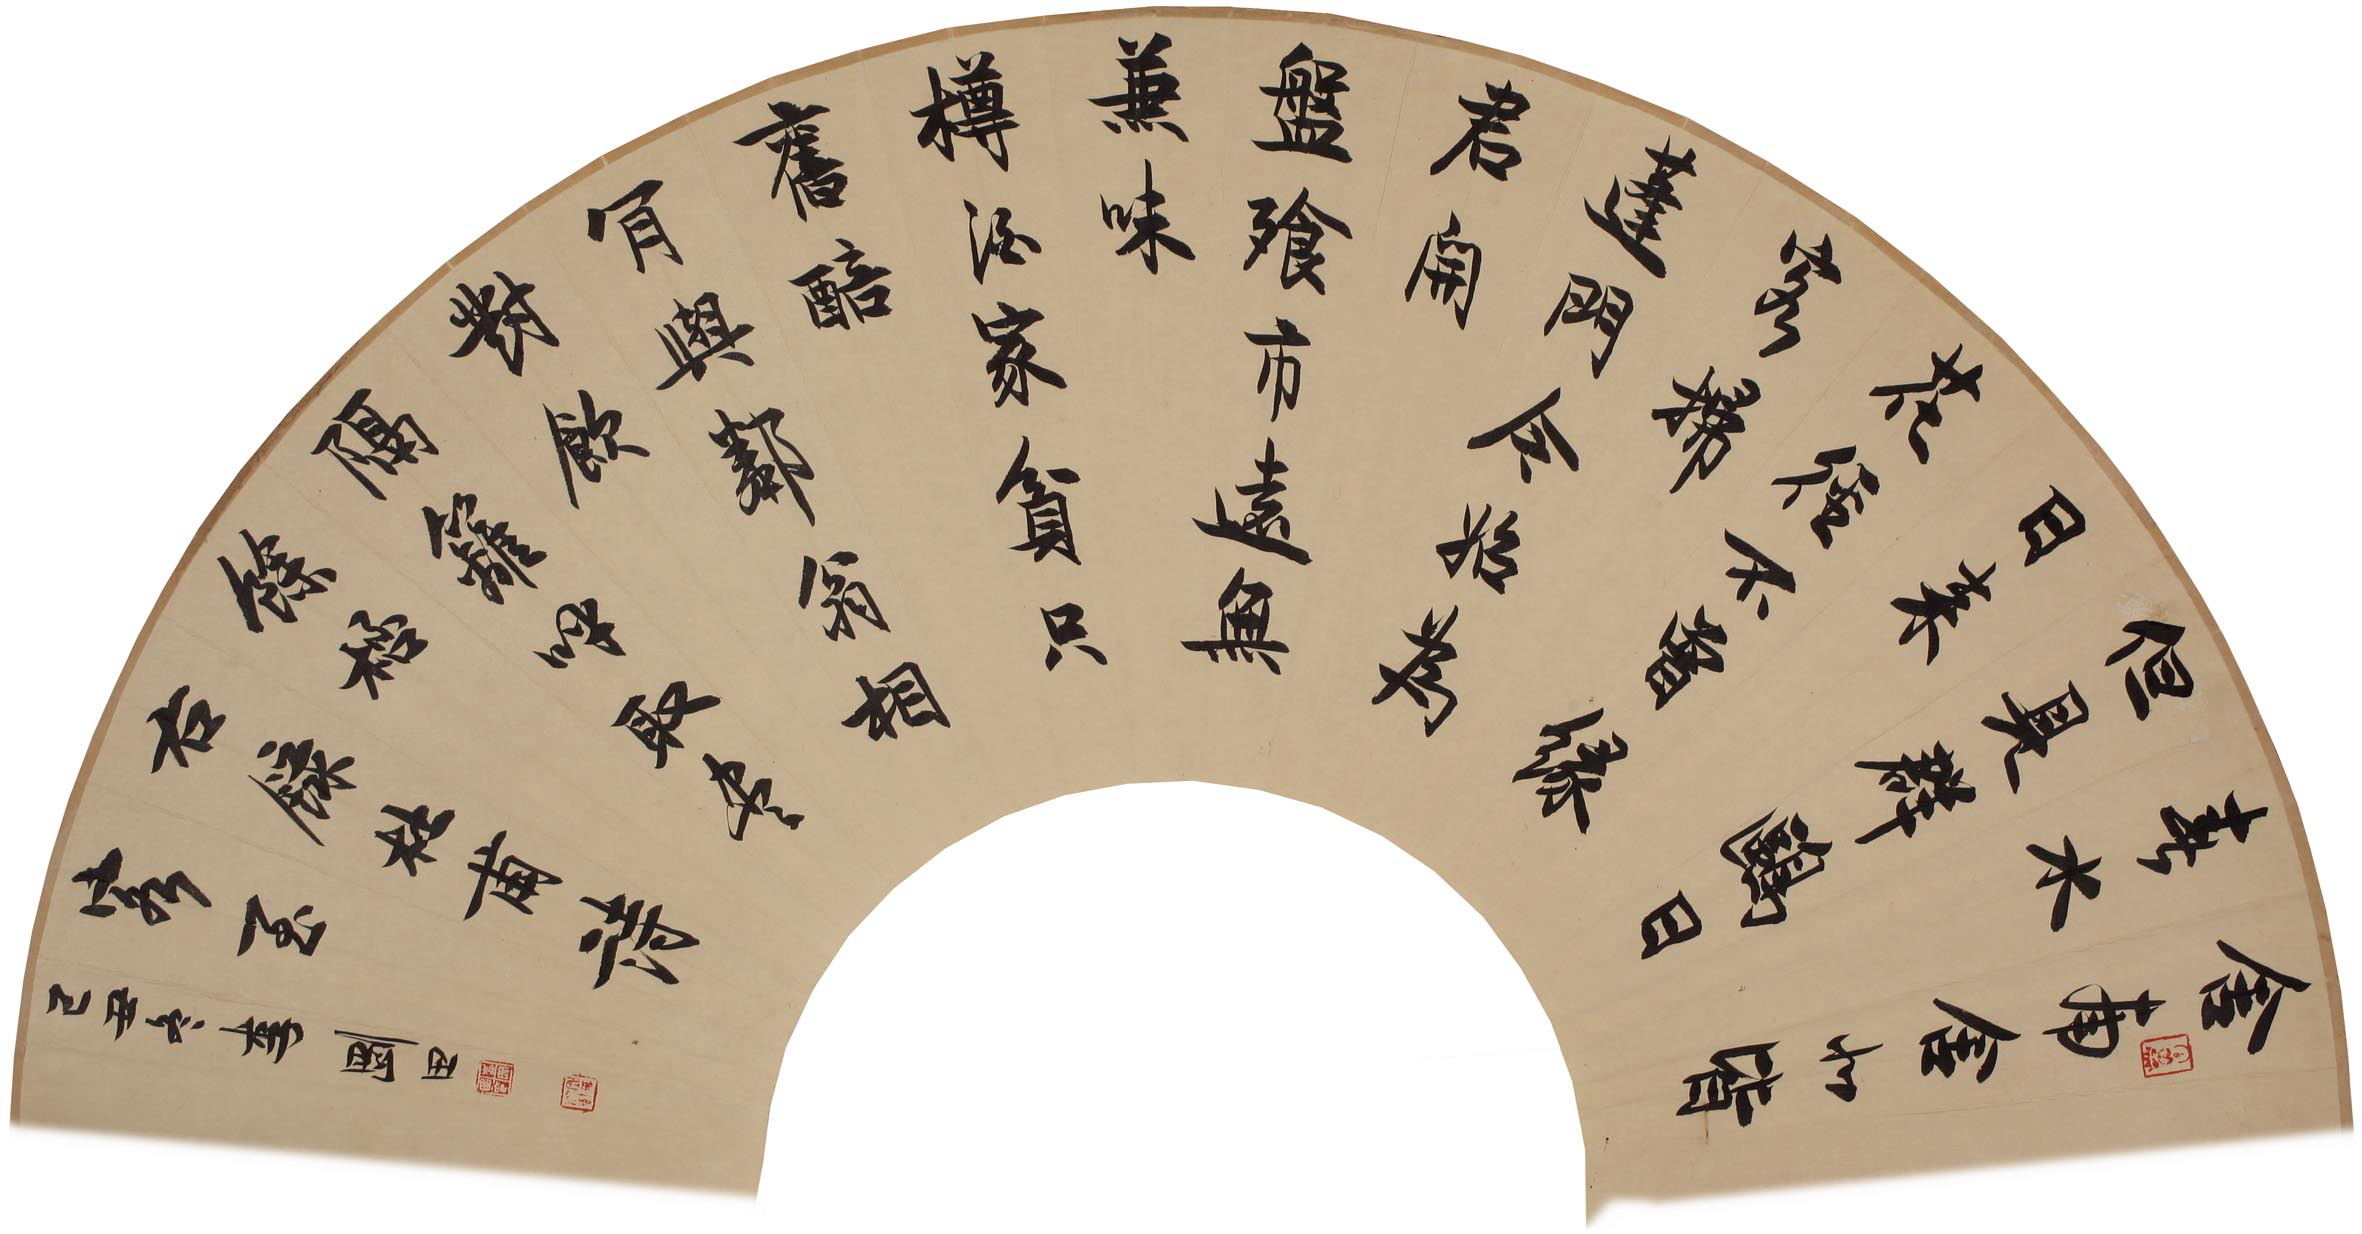 舍南舍北皆
春水
但見群鷗日
日來
花徑不曾緣
客掃
蓬門今始為
君開
盤飧市遠無
兼味
樽酒家貧只
舊醅
肯與鄰翁相
對飲
隔籬呼取盡
餘杯
右錄杜甫詩
客至
己丑冬李剛田